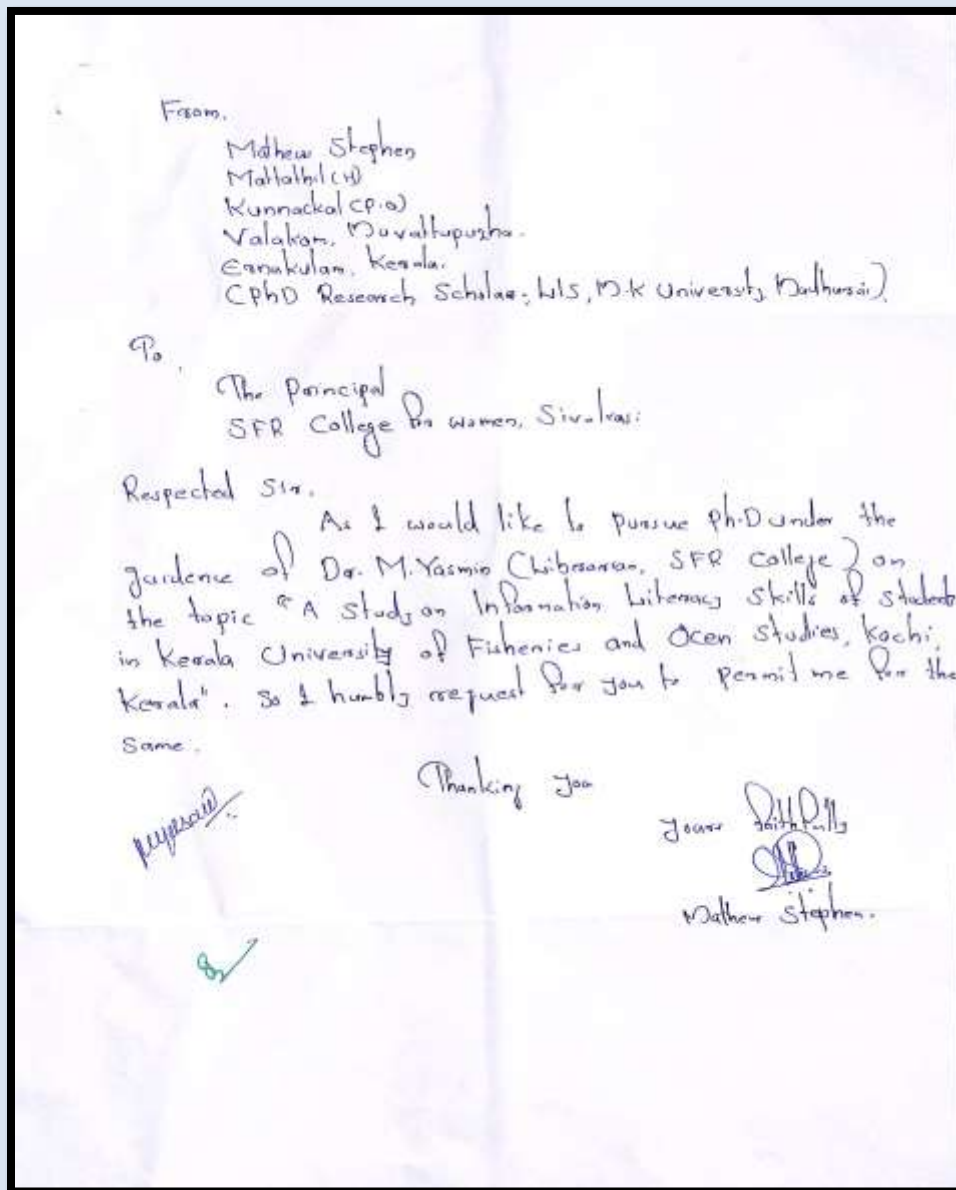 From,
Mathew Stephen
Mattathil (H)
Kunnackal (P.O)
Valakom, Muvattupuzha.
Ernakulam, Kerala.
(PhD Research Scholar, LIS, M.K University, Madhurai)
To
The Principal
SFR College for women, Sivakasi.
Respected Sir,
As I would like to pursue Ph.D under the
guidence of Dr. M. Yasmin (Librarian, SFR College) on
the topic "A Study on Information Literacy Skills of Students
in Kerala University of Fisheries and Ocen Studies, Kochi,
Kerala". So I humbly request for you to permit me for the
Same.
Thanking you
yours faithfully
Mathew Stephen.